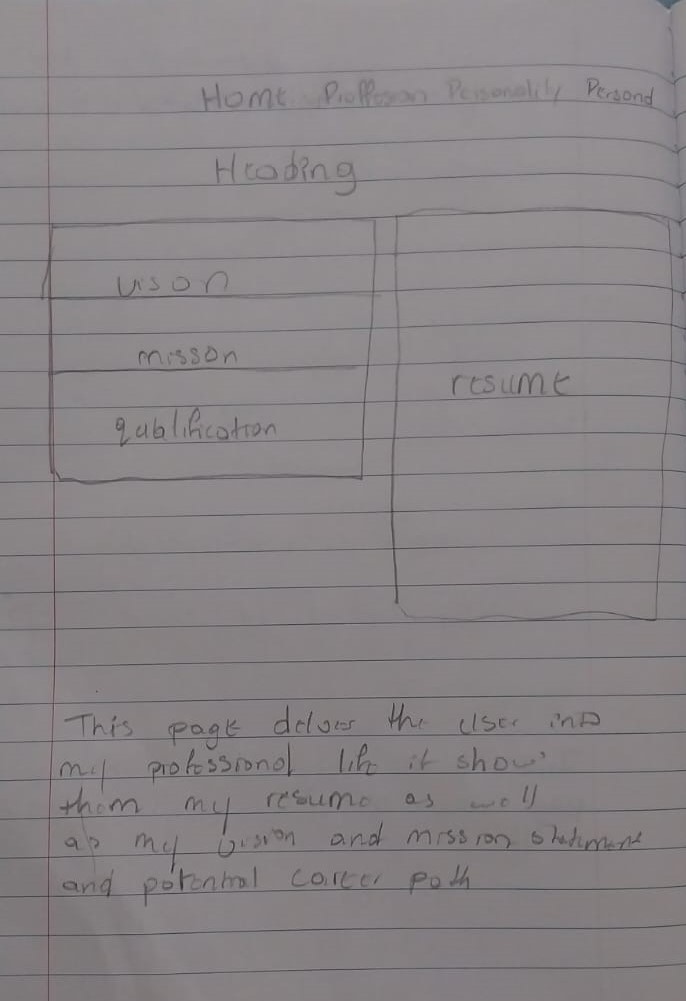 Home Proffosion Personality Persond
Heading
vison
misson
resume
qublification
This page delves the user into
my professional life it show
them my resume as well
as my vision and mission statement
and potential career path